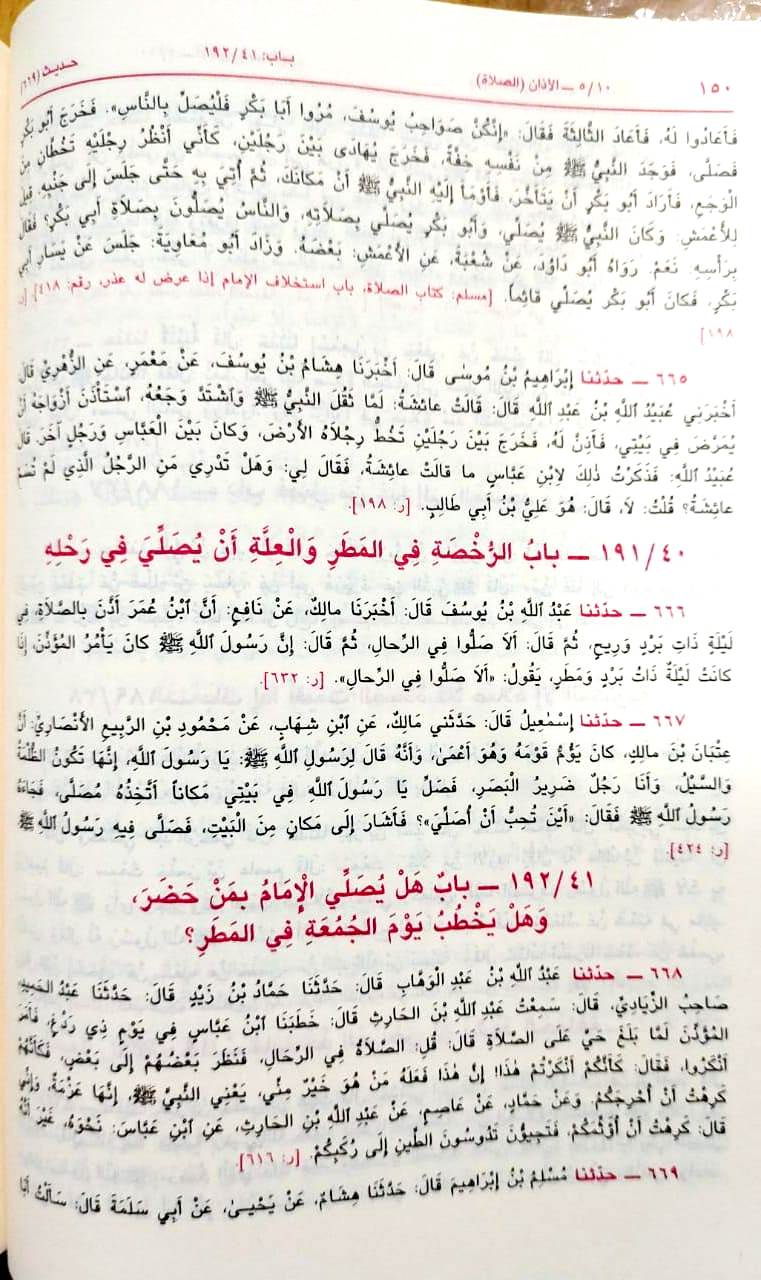 ١٥٠ ٥/١٠ ـ الأذان (الصلاة) باب: ١٩٢/٤١ حديث (٦٦٩)
فَأَعَادُوا لَهُ، فَأَعَادَ الثَّالِثَةَ فَقَالَ: «إِنَّكُنَّ صَوَاحِبُ يُوسُفَ، مُرُوا أَبَا بَكْرٍ فَلْيُصَلِّ بِالنَّاسِ». فَخَرَجَ أَبُو بَكْرٍ
فَصَلَّى، فَوَجَدَ النَّبِيُّ ﷺ مِنْ نَفْسِهِ خِفَّةً، فَخَرَجَ يُهَادَى بَيْنَ رَجُلَيْنِ، كَأَنِّي أَنْظُرُ رِجْلَيْهِ تَخُطَّانِ مِنَ
الْوَجَعِ، فَأَرَادَ أَبُو بَكْرٍ أَنْ يَتَأَخَّرَ، فَأَوْمَأَ إِلَيْهِ النَّبِيُّ ﷺ أَنْ مَكَانَكَ، ثُمَّ أُتِيَ بِهِ حَتَّى جَلَسَ إِلَى جَنْبِهِ. قِيلَ
لِلْأَعْمَشِ: وَكَانَ النَّبِيُّ ﷺ يُصَلِّي، وَأَبُو بَكْرٍ يُصَلِّي بِصَلَاتِهِ، وَالنَّاسُ يُصَلُّونَ بِصَلَاةِ أَبِي بَكْرٍ؟ فَقَالَ
بِرَأْسِهِ: نَعَمْ. رَوَاهُ أَبُو دَاوُدَ، عَنْ شُعْبَةَ، عَنِ الْأَعْمَشِ: بَعْضَهُ. وَزَادَ أَبُو مُعَاوِيَةَ: جَلَسَ عَنْ يَسَارِ أَبِي
بَكْرٍ، فَكانَ أَبُو بَكْرٍ يُصَلِّي قائِماً. [مسلم: كتاب الصلاة، باب استخلاف الإمام إذا عرض له عذر، رقم: ٤١٨]. [ر:
١٩٨]
٦٦٥ ـ حدّثنا إِبْرَاهِيمُ بْنُ مُوسَى قَالَ: أَخْبَرَنَا هِشَامُ بْنُ يُوسُفَ، عَنْ مَعْمَرٍ، عَنِ الزُّهْرِيِّ قَالَ
أَخْبَرَنِي عُبَيْدُ اللهِ بْنُ عَبْدِ اللهِ قَالَ: قَالَتْ عَائِشَةُ: لَمَّا ثَقُلَ النَّبِيُّ ﷺ وَاشْتَدَّ وَجَعُهُ، اسْتَأْذَنَ أَزْوَاجَهُ أَنْ
يُمَرَّضَ فِي بَيْتِي، فَأَذِنَّ لَهُ، فَخَرَجَ بَيْنَ رَجُلَيْنِ تَخُطُّ رِجْلَاهُ الْأَرْضَ، وَكانَ بَيْنَ الْعَبَّاسِ وَرَجُلٍ آخَرَ. قَالَ
عُبَيْدُ اللهِ: فَذَكَرْتُ ذٰلِكَ لِابْنِ عَبَّاسٍ ما قالَتْ عائِشَةُ، فَقَالَ لِي: وَهَلْ تَدْرِي مَنِ الرَّجُلُ الَّذِي لَمْ تُسَمِّ
عائِشَةُ؟ قُلْتُ: لَا، قَالَ: هُوَ عَلِيُّ بْنُ أَبِي طَالِبٍ. [ر: ١٩٨].
١٩١/٤٠ ـ بابُ الرُّخْصَةِ فِي المَطَرِ وَالْعِلَّةِ أَنْ يُصَلِّيَ فِي رَحْلِهِ
٦٦٦ ـ حدّثنا عَبْدُ اللهِ بْنُ يُوسُفَ قَالَ: أَخْبَرَنَا مالكٌ، عَنْ نَافِعٍ: أَنَّ ابْنَ عُمَرَ أَذَّنَ بِالصَّلَاةِ، فِي
لَيْلَةٍ ذَاتِ بَرْدٍ وَرِيحٍ، ثُمَّ قَالَ: أَلَا صَلُّوا فِي الرِّحالِ، ثُمَّ قَالَ: إِنَّ رَسُولَ اللهِ ﷺ كانَ يَأْمُرُ المُؤَذِّنَ، إِذَا
كانَتْ لَيْلَةٌ ذَاتُ بَرْدٍ وَمَطَرٍ، يَقُولُ: «أَلَا صَلُّوا فِي الرِّحالِ». [ر: ٦٣٢].
٦٦٧ ـ حدّثنا إِسْمٰعِيلُ قَالَ: حَدَّثَنِي مَالِكٌ، عَنِ ابْنِ شِهَابٍ، عَنْ مَحْمُودِ بْنِ الرَّبِيعِ الْأَنْصَارِيِّ: أَنَّ
عِتْبَانَ بْنَ مالِكٍ، كانَ يَؤُمُّ قَوْمَهُ وَهُوَ أَعْمَى، وَأَنَّهُ قَالَ لِرَسُولِ اللهِ ﷺ: يَا رَسُولَ اللهِ، إِنَّهَا تَكُونُ الظُّلْمَةُ
وَالسَّيْلُ، وَأَنَا رَجُلٌ ضَرِيرُ الْبَصَرِ، فَصَلِّ يَا رَسُولَ اللهِ فِي بَيْتِي مَكاناً أَتَّخِذُهُ مُصَلًّى، فَجَاءَهُ
رَسُولُ اللهِ ﷺ فَقَالَ: «أَيْنَ تُحِبُّ أَنْ أُصَلِّيَ»؟ فَأَشَارَ إِلَى مَكانٍ مِنَ الْبَيْتِ، فَصَلَّى فِيهِ رَسُولُ اللهِ ﷺ
[ر: ٤٢٤]
١٩٢/٤١ ـ بابٌ هَلْ يُصَلِّي الْإِمَامُ بِمَنْ حَضَرَ،
وَهَلْ يَخْطُبُ يَوْمَ الجُمُعَةِ فِي المَطَرِ؟
٦٦٨ ـ حدّثنا عَبْدُ اللهِ بْنُ عَبْدِ الْوَهَّابِ قَالَ: حَدَّثَنَا حَمَّادُ بْنُ زَيْدٍ قَالَ: حَدَّثَنَا عَبْدُ الحَمِيدِ
صَاحِبُ الزِّيَادِيِّ، قَالَ: سَمِعْتُ عَبْدَ اللهِ بْنَ الحَارِثِ قَالَ: خَطَبَنَا ابْنُ عَبَّاسٍ فِي يَوْمٍ ذِي رَدْغٍ، فَأَمَرَ
المُؤَذِّنَ لَمَّا بَلَغَ حَيَّ عَلَى الصَّلَاةِ قَالَ: قُلِ: الصَّلَاةُ فِي الرِّحالِ، فَنَظَرَ بَعْضُهُمْ إِلَى بَعْضٍ، فَكَأَنَّهُمْ
أَنْكَرُوا، فَقَالَ: كَأَنَّكُمْ أَنْكَرْتُمْ هٰذَا! إِنَّ هٰذَا فَعَلَهُ مَنْ هُوَ خَيْرٌ مِنِّي، يَعْنِي النَّبِيَّ ﷺ، إِنَّهَا عَزْمَةٌ، وَإِنِّي
كَرِهْتُ أَنْ أُحْرِجَكُمْ. وَعَنْ حَمَّادٍ، عَنْ عَاصِمٍ، عَنْ عَبْدِ اللهِ بْنِ الحَارِثِ، عَنِ ابْنِ عَبَّاسٍ: نَحْوَهُ، غَيْرَ أَنَّهُ
قَالَ: كَرِهْتُ أَنْ أُؤَثِّمَكُمْ، فَتَجِيؤُنَ تَدُوسُونَ الطِّينَ إِلَى رُكَبِكُمْ. [ر: ٦١٦].
٦٦٩ ـ حدّثنا مُسْلِمُ بْنُ إِبْرَاهِيمَ قَالَ: حَدَّثَنَا هِشَامٌ، عَنْ يَحْيىٰ، عَنْ أَبِي سَلَمَةَ قَالَ: سَأَلْتُ أَبَا